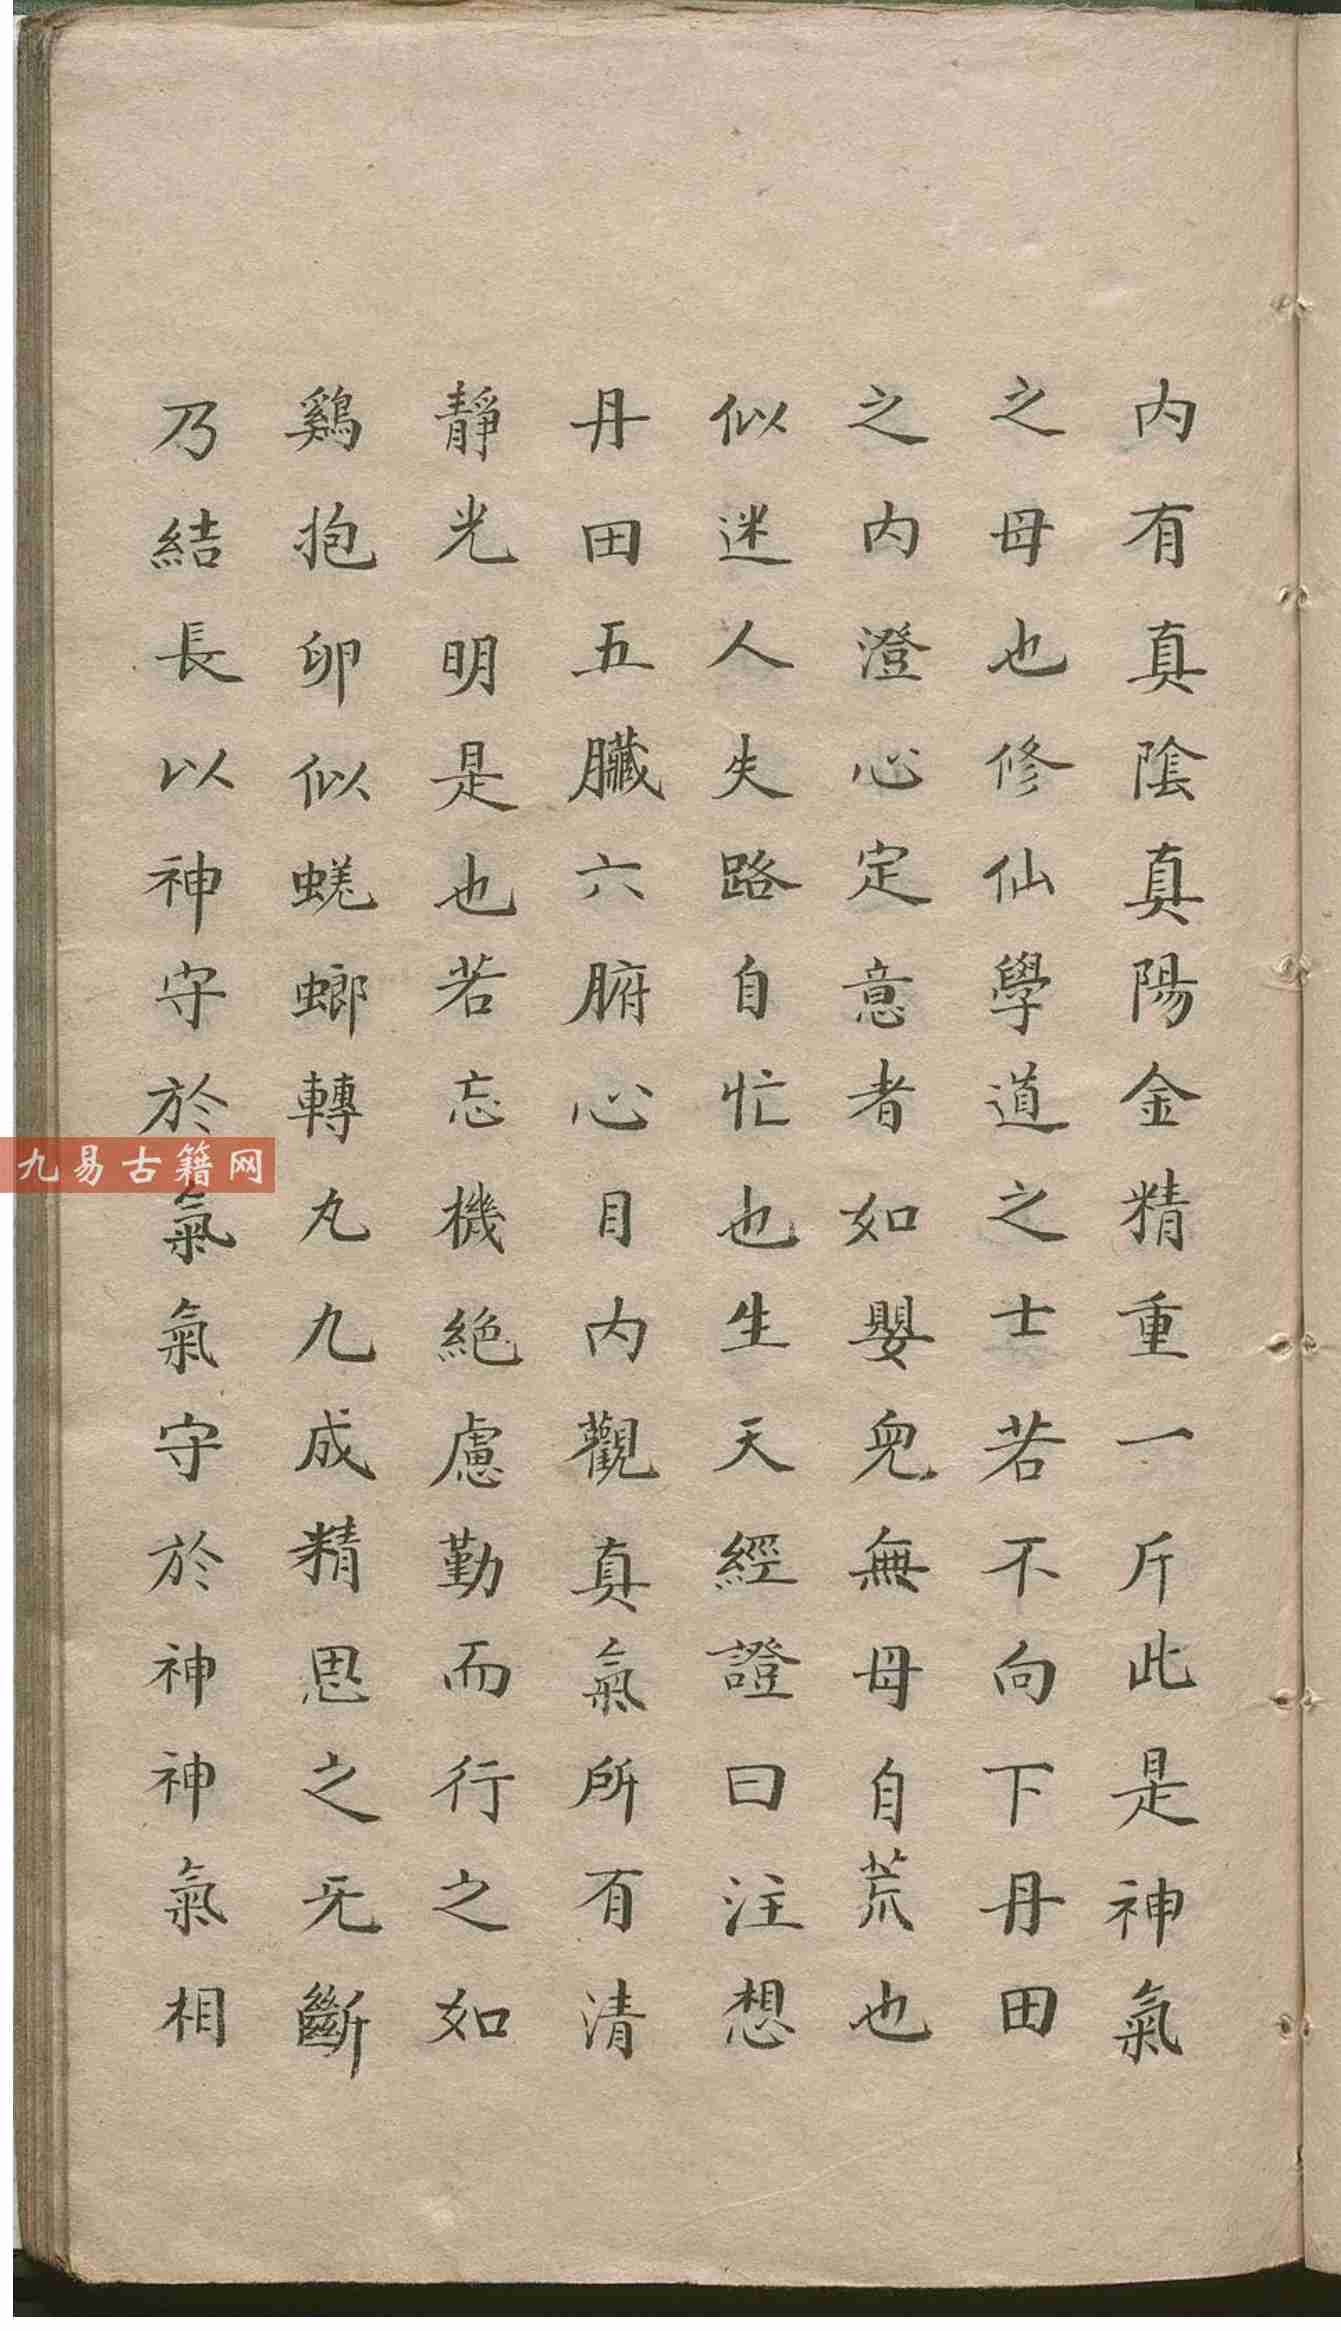 内有真陰真陽金精重一斤此是神氣
之母也修仙學道之士若不向下丹田
之内澄心定意者如嬰兒無母自荒也
似迷人失路自忙也生天經證曰注想
丹田五臟六腑心目内觀真氣所有清
靜光明是也若忘機絶慮勤而行之如
鷄抱卵似蜣螂轉丸九成精思之无斷
乃結長以神守於氣氣守於神神氣相
九易古籍网